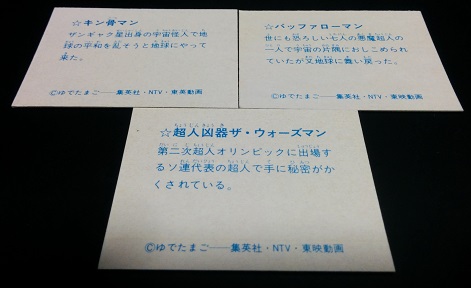 ☆キン骨マン
ザンギャク星出身の宇宙怪人で地
球の平和を乱そうと地球にやって
来た。
©ゆでたまご──集英社・NTV・東映動画
☆バッファローマン
世にも恐ろしい七人の悪魔超人の
一人で宇宙の片隅におしこめられ
ていたが又地球に舞い戻った。
©ゆでたまご──集英社・NTV・東映動画
☆超人凶器ザ・ウォーズマン
第二次超人オリンピックに出場す
るソ連代表の超人で手に秘密がか
くされている。
©ゆでたまご──集英社・NTV・東映動画